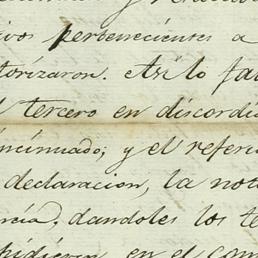 ivos pertenecientes a
torizaron. Así lo fa
l tercero en discordi
incinuado; y el refer
declaracion, la not
rcía, dandoles los te
pidieron en el com